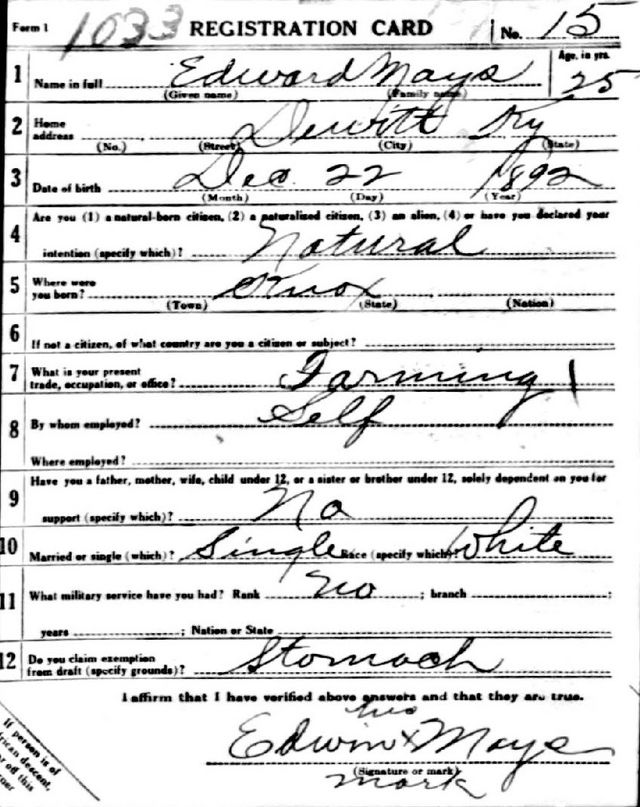 Form 1 1033 REGISTRATION CARD No. 15
1 Name in full Edward Mays Age, in yrs. 25
(Given name) (Family name)
2 Home address Dewitt Ky
(No.) (Street) (City) (State)
3 Date of birth Dec 22 1892
(Month) (Day) (Year)
4 Are you (1) a natural-born citizen, (2) a naturalized citizen, (3) an alien, (4) or have you declared your
intention (specify which)? Natural
5 Where were you born? Knox
(Town) (State) (Nation)
6 If not a citizen, of what country are you a citizen or subject?
7 What is your present trade, occupation, or office? Farming 1
8 By whom employed? Self
Where employed?
9 Have you a father, mother, wife, child under 12, or a sister or brother under 12, solely dependent on you for
support (specify which)? No
10 Married or single (which)? Single Race (specify which) White
11 What military service have you had? Rank No ; branch ;
years ; Nation or State
12 Do you claim exemption from draft (specify grounds)? Stomach
I affirm that I have verified above answers and that they are true.
his
Edwin x Mays
(Signature or mark)
mark
If person is of
African descent,
off this
corner